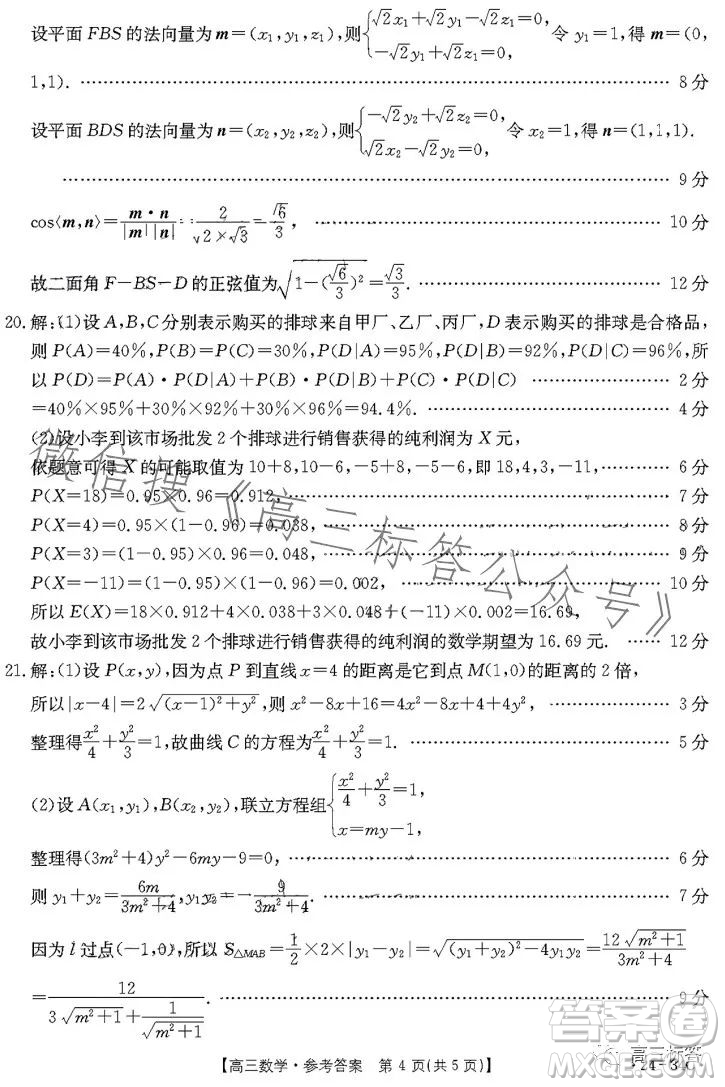 设平面 FBS 的法向量为 m=(x₁,y₁,z₁),则{√2x₁+√2y₁-√2z₁=0, -√2y₁+√2z₁=0, 令 y₁=1,得 m=(0,
1,1). …… 8 分
设平面 BDS 的法向量为 n=(x₂,y₂,z₂),则{-√2y₂+√2z₂=0, √2x₂-√2y₂=0, 令 x₂=1,得 n=(1,1,1).
…… 9 分
cos⟨m,n⟩=m·n/|m||n|=2/(√2×√3)=√6/3, …… 10 分
故二面角 F-BS-D 的正弦值为√(1-(√6/3)²)=√3/3. …… 12 分
20.解:(1)设 A,B,C 分别表示购买的排球来自甲厂、乙厂、丙厂,D 表示购买的排球是合格品,
则 P(A)=40%,P(B)=P(C)=30%,P(D|A)=95%,P(D|B)=92%,P(D|C)=96%,所
以 P(D)=P(A)·P(D|A)+P(B)·P(D|B)+P(C)·P(D|C) …… 2 分
=40%×95%+30%×92%+30%×96%=94.4%. …… 4 分
(2)设小李到该市场批发 2 个排球进行销售获得的纯利润为 X 元,
依题意可得 X 的可能取值为 10+8,10-6,-5+8,-5-6,即 18,4,3,-11, …… 6 分
P(X=18)=0.95×0.96=0.912, …… 7 分
P(X=4)=0.95×(1-0.96)=0.038, …… 8 分
P(X=3)=(1-0.95)×0.96=0.048, …… 9 分
P(X=-11)=(1-0.95)×(1-0.96)=0.002, …… 10 分
所以 E(X)=18×0.912+4×0.038+3×0.048+(-11)×0.002=16.69,
故小李到该市场批发 2 个排球进行销售获得的纯利润的数学期望为 16.69 元. …… 12 分
21.解:(1)设 P(x,y),因为点 P 到直线 x=4 的距离是它到点 M(1,0)的距离的 2 倍,
所以|x-4|=2√((x-1)²+y²),则 x²-8x+16=4x²-8x+4+4y², …… 3 分
整理得x²/4+y²/3=1,故曲线 C 的方程为x²/4+y²/3=1. …… 5 分
(2)设 A(x₁,y₁),B(x₂,y₂),联立方程组{x²/4+y²/3=1, x=my-1,
整理得(3m²+4)y²-6my-9=0, …… 6 分
则 y₁+y₂=6m/(3m²+4),y₁y₂=-9/(3m²+4). …… 7 分
因为 l 过点(-1,0),所以 S△MAB=1/2×2×|y₁-y₂|=√((y₁+y₂)²-4y₁y₂)=12√(m²+1)/(3m²+4)
=12/(3√(m²+1)+1/√(m²+1)). …… 9 分
【高三数学·参考答案 第 4 页(共 5 页)】
·24-34C·
微信搜《高三标答公众号》
高三标答
作业帮
MXQE.COM